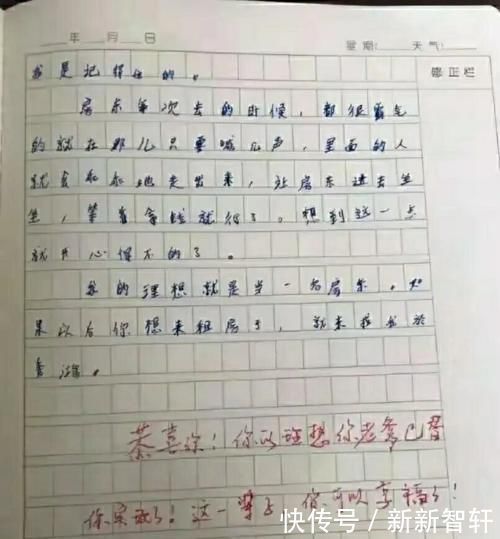 年 月 日 星期: 天气:
我是记得住的。 修正栏
房东每次去的时候，都很霸气
的就在那儿只要喊几声，里面的人
就会乖乖地走出来，让房东进去坐
坐，等着拿钱就行了。想到这一点
就开心得不的了。
我的理想就是当一名房东，如
果以后你想来租房子，就来找我
香
恭喜你！你的理想你老爹已替
你实现了！这一辈子你可以享福了！
快传号／新新智轩